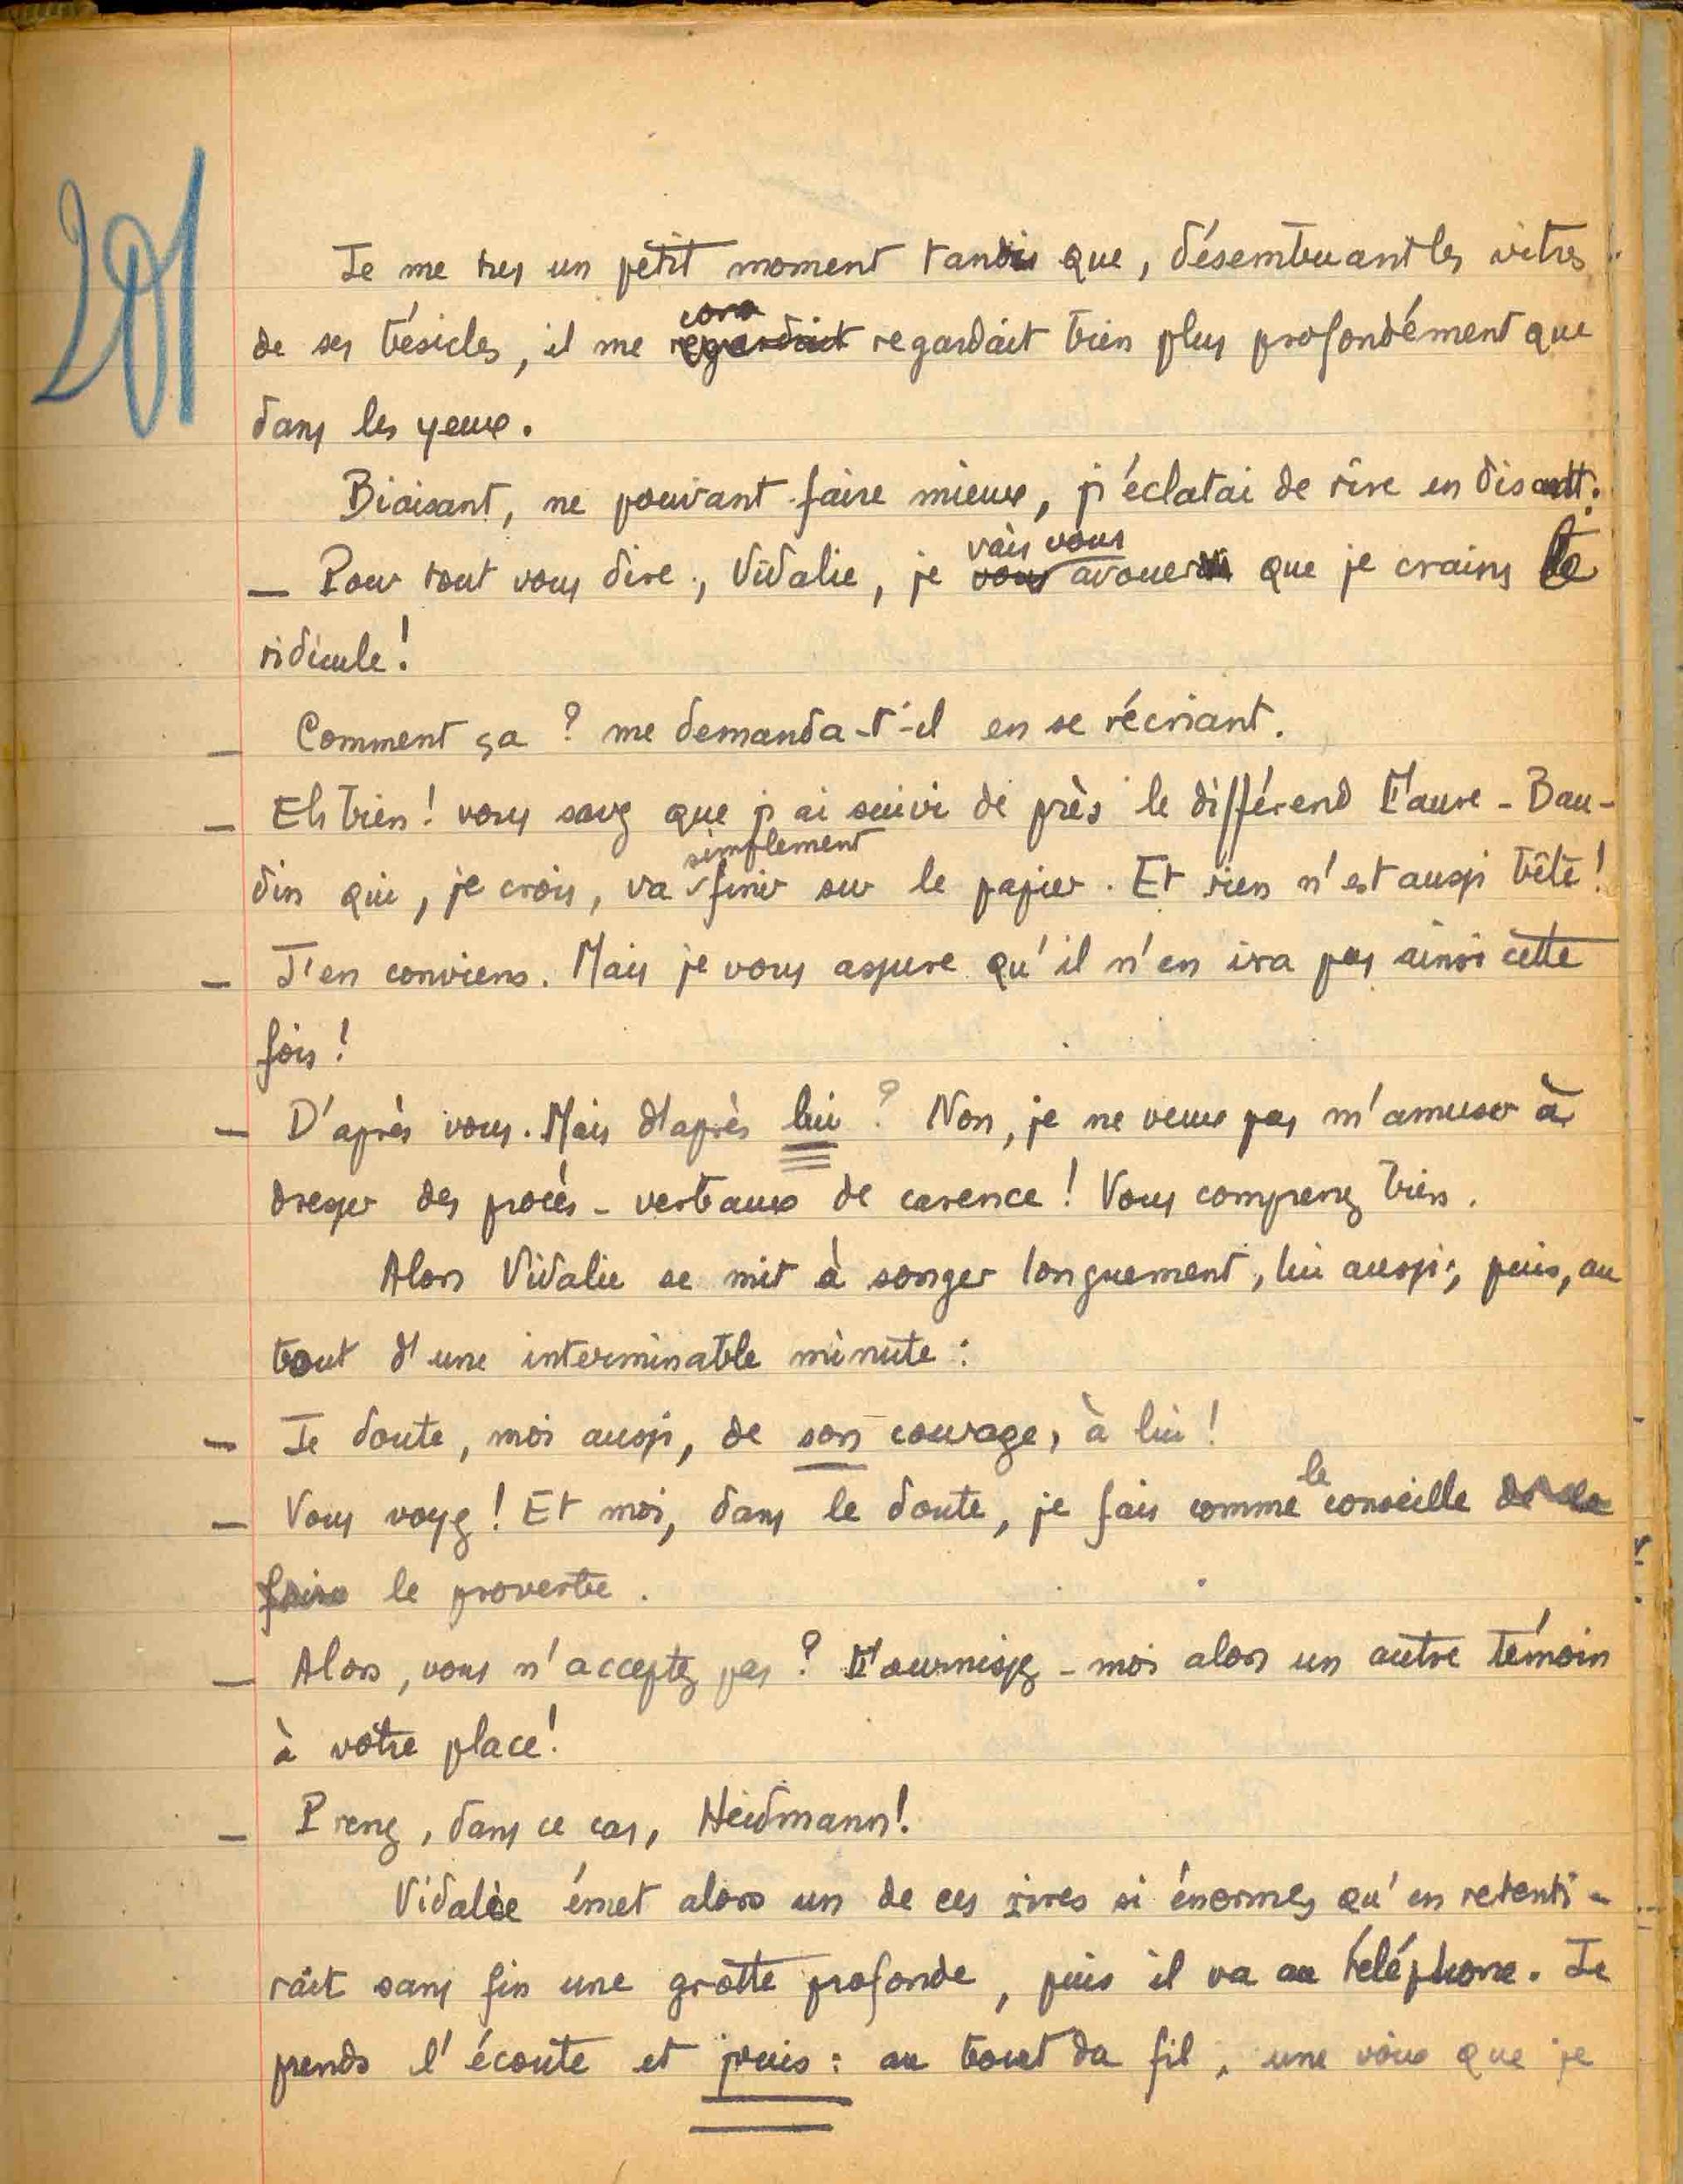 201
Je me tus un petit moment tandis que, désembuant les vitres
de ses bésicles, il me regardait regardait bien plus profondément que
dans les yeux.
Biaisant, ne pouvant faire mieux, j'éclatai de rire en disant:
— Pour tout vous dire, Vidalie, je vous vais vous avouer que je crains le
ridicule!
— Comment ça ? me demanda-t'-il en se récriant.
— Eh bien! vous savez que j'ai suivi de près le différend Faure-Bau-
din qui, je crois, va simplement finir sur le papier. Et rien n'est aussi bête!
— J'en conviens. Mais je vous assure qu'il n'en ira pas ainsi cette
fois!
— D'après vous. Mais d'après lui ? Non, je ne veux pas m'amuser à
dresser des procès-verbaux de carence! Vous comprenez bien.
Alors Vidalie se mit à songer longuement, lui aussi, puis, au
bout d'une interminable minute :
— Je doute, moi aussi, de son courage, à lui!
— Vous voyez! Et moi, dans le doute, je fais comme le conseille de le
faire le proverbe.
— Alors, vous n'acceptez pas ? Fournissez-moi alors un autre témoin
à votre place!
— Prenez, dans ce cas, Heidmann!
Vidalie émet alors un de ces rires si énormes qu'en retenti-
rait sans fin une grotte profonde, puis il va au téléphone. Je
prends l'écoute et puis : au bout du fil, une voix que je